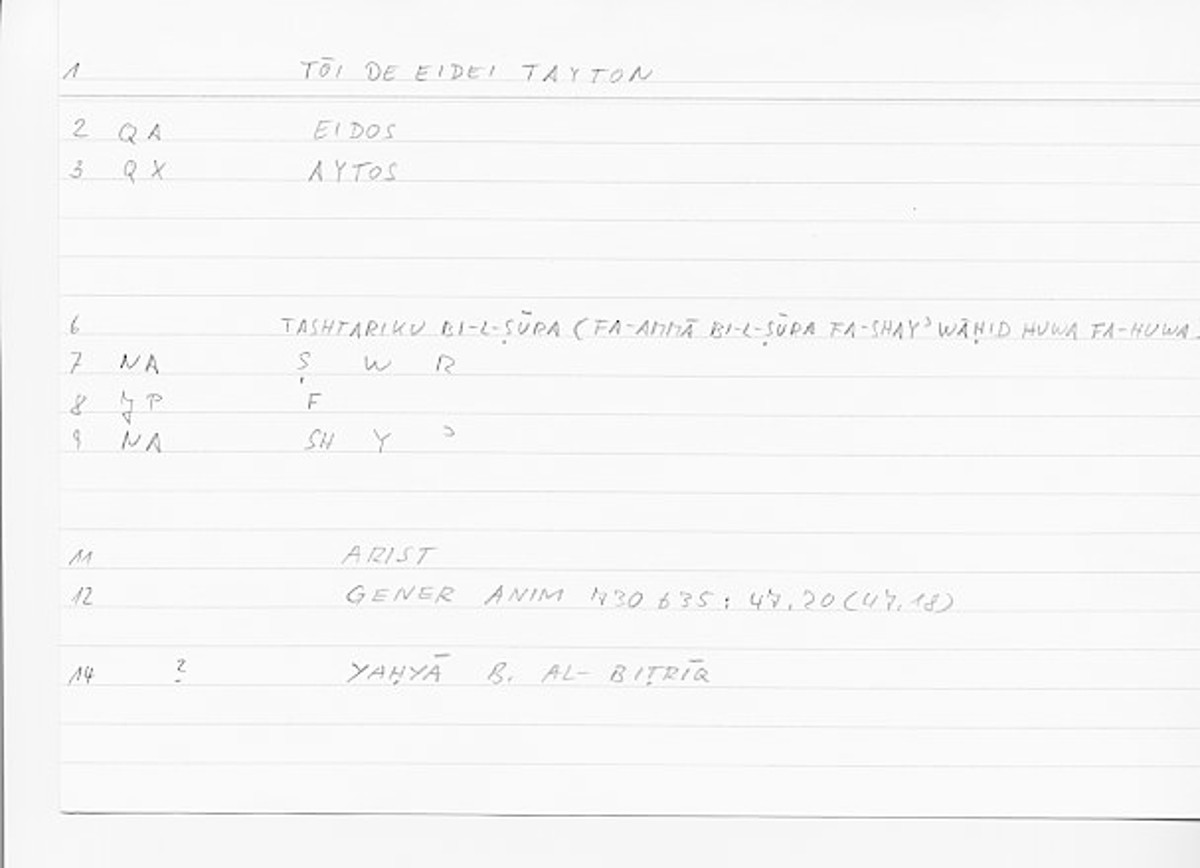 1 TŌI DE EIDEI TAYTON
2 QA EIDOS
3 QX AYTOS
6 TASHTARIKU BI-L-ṢŪRA (FA-AMMĀ BI-L-ṢŪRA FA-SHAYʾ WĀḤID HUWA FA-HUWA.
7 NA Ṣ W R
8 JP F
9 NA SH Y ʾ
11 ARIST
12 GENER ANIM 730 b35; 47.20 (47.18)
14 ? YAḤYĀ B. AL-BIṬRĪQ